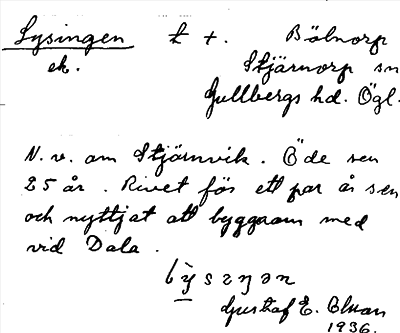 Lysingen t +. Bölnorp
ek. Stjärnorp sn
Gullbergs hd. Ögl.
N. v. om Stjärnvik. Öde sen
25 år. Rivet för ett par år sen
och nyttjat att bygga om med
vid Dala.
Gustaf E.
1936.